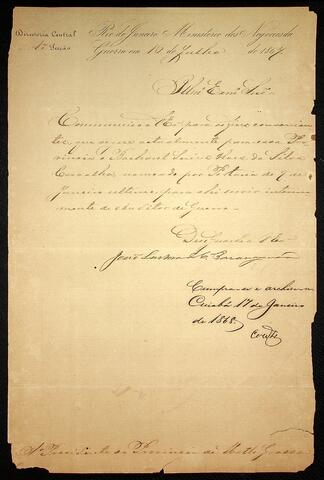 Directoria Central
1ª Secção
Rio de Janeiro Ministerio dos Negocios da
Guerra em 10 de Julho de 1867.
Illmo Exmo Snr
Communico a V Ex para os fins convenien-
tes, que segue actualmente para essa Pro-
vincia o Bacharel Luiz Alves da Silva
Carvalho, nomeado por Portaria de 9 de
Janeiro ultimo, para ahi servir interina-
mente de Auditor de Guerra.
Deos Guarde a V Ex
João Lustosa da Cª Paranaguá
Cumpra-se e archive-se
Cuiabá 17 de Janeiro
de 1868.
Sr Presidente da Provincia de Matto Grosso